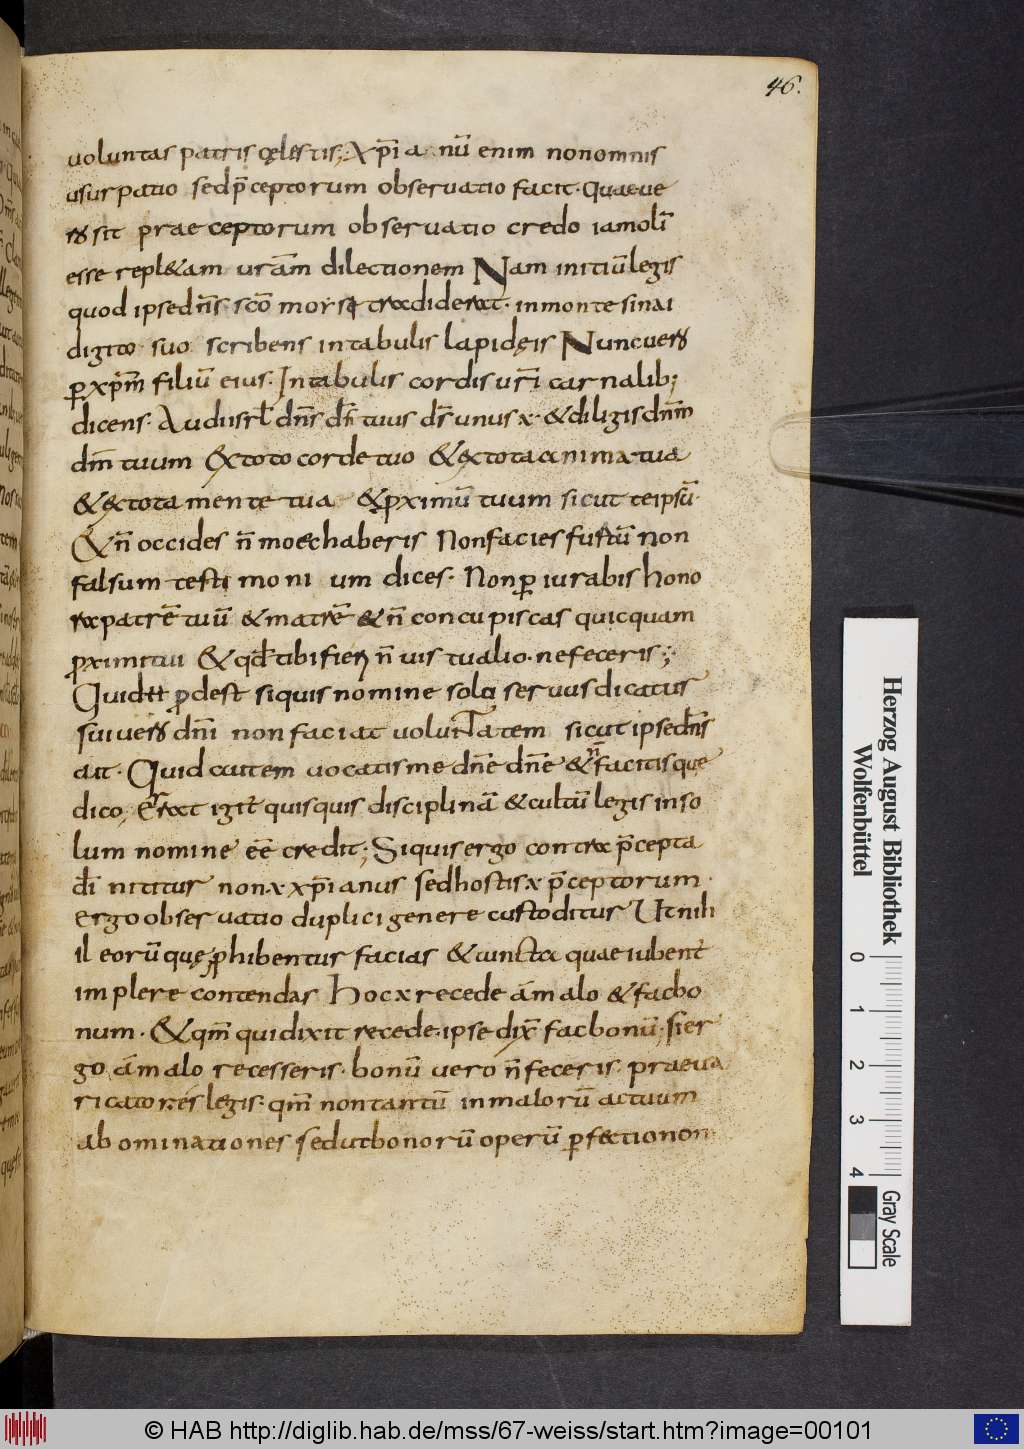 46.
voluntas patris cęlestis; Xp̄ianū enim non omnis
usurpatio sed p̄ceptorum observatio facit. Quae ve
ro sit praeceptorum observatio credo iam olī
esse repl&am urām dilectionem Nam initiū legis
quod ipse dn̄s sc̄o moysę tradiderat. in monte sinai
digito suo scribens in tabulis lapidęis Nunc vero
per xp̄m filiū eius. In tabulis cordis urī carnalib;
dicens. Audi isrł dn̄s ds̄ tuus ds̄ unus x̄. & diligis dn̄m
dm̄ tuum ex toto corde tuo & ex tota anima tua
& ex tota mentę tua & proximū tuum sicut te ipsū.
Et n̄ occides n̄ moechaberis Non facies furtū non
falsum testimonium dices. Non periurabis hono
ra patrē tuū & matrē & n̄ concupiscas quicquam
proximi tui & qd tibi fieri n̄ vis tu alio. ne feceris;
Quid prodest siquis nomine solo servus dicatur
sui vero dn̄i non faciat voluntatem sicut ipse dn̄s
ait. Quid autem vocatis me dn̄e dn̄e & n̄ facitis que
dico; Errat igit quisquis disciplinā & cultū legis in so
lum nomine eē credit; Siquis ergo contra p̄cepta
dī nititur non x̄ xp̄ianus sed hostis x̄ p̄ceptorum.
Ergo observatio duplici genere custoditur Ut nih
il eorū quę prohibentur facias & cuncta quae iubent
implere contendas Hoc x̄ recede ā malo & fac bo
num. & qm̄ qui dixit recede. ipse dix̄ fac bonū; si er
go ā malo recesseris. bonū vero n̄ feceris. praeva
ricator és legis. qm̄ non tantū in malorū actuum
abominationes sed ut bonorū operū perfectionem
Herzog August Bibliothek
Wolfenbüttel
0 1 2 3 4
Gray Scale
© HAB http://diglib.hab.de/mss/67-weiss/start.htm?image=00101